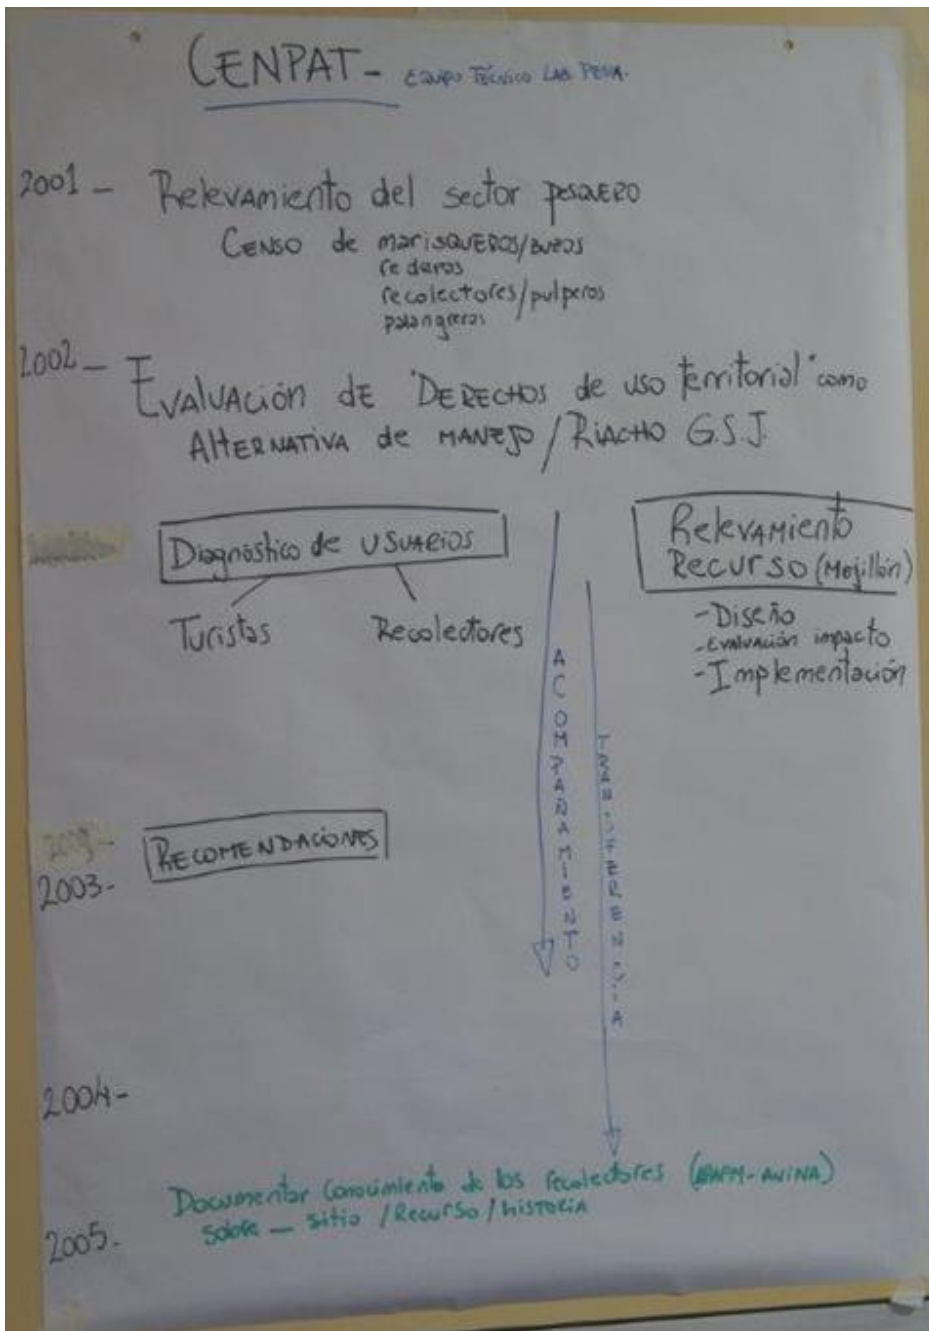 CENPAT - EQUIPO TÉCNICO LAB. PESQ.
2001 - Relevamiento del sector PESQUERO
CENSO de marisqueros/buzos
rederos
recolectores/pulperos
palangreros
2002 - Evaluación de "Derechos de uso territorial" como
Alternativa de manejo / Riacho G.S.J.
Diagnóstico de USUARIOS
Turistas Recolectores
Relevamiento
Recurso (Mejillón)
- Diseño
- Evaluación impacto
- Implementación
ACOMPAÑAMIENTO
TRANSFERENCIA
2003 - RECOMENDACIONES
2004 -
Documentar conocimiento de los recolectores (APAPM-AVINA)
2005 - sobre - sitio / Recurso / historia